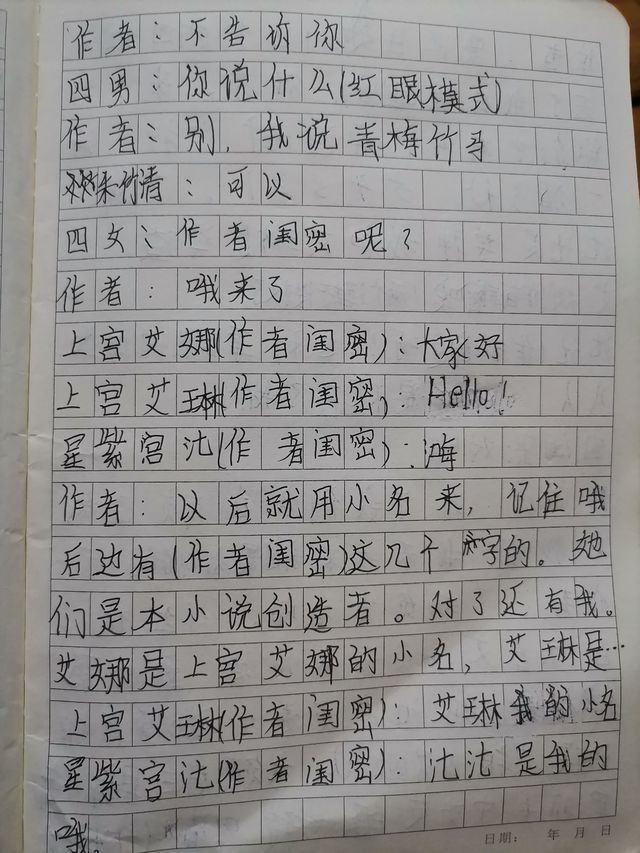 作者：不告诉你
四男：你说什么(红眼模式)
作者：别，我说青梅竹马
朱竹清：可以
四女：作者闺密呢？
作者：哦来了
上宫艾娜(作者闺密)：大家好
上宫艾琳(作者闺密)：Hello！
星紫宫沈(作者闺密)：嗨
作者：以后就用小名来，记住哦
后边有(作者闺密)这几个字的。她
们是本小说创造者。对了还有我。
艾娜是上宫艾娜的小名，艾琳是…
上宫艾琳(作者闺密)：艾琳我的小名
星紫宫沈(作者闺密)：沈沈是我的
哦。
日期： 年 月 日